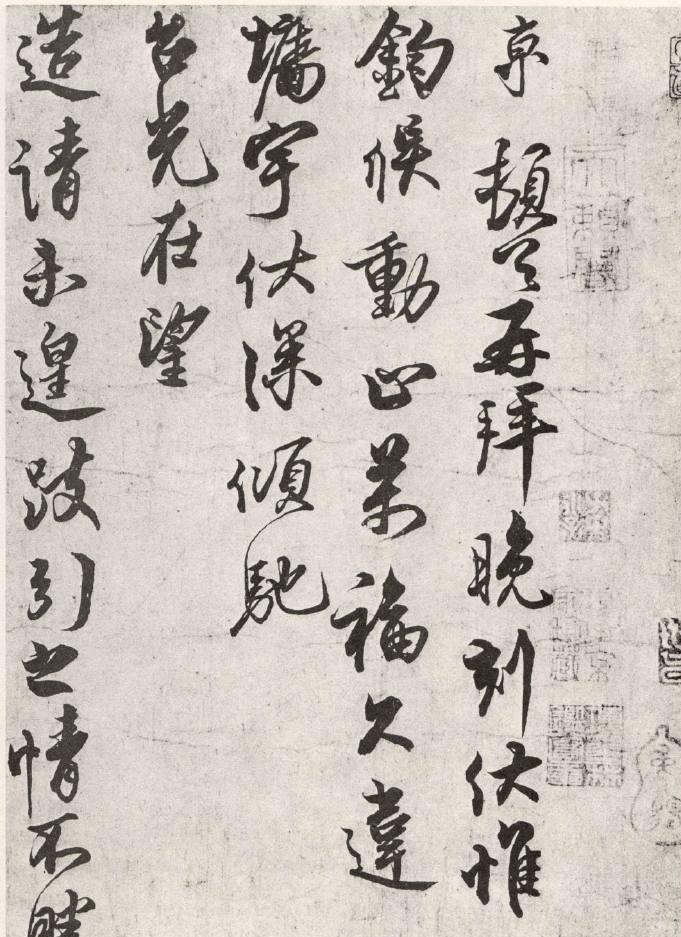 京頓首再拜晚刻伏惟
鈞候動止萬福久違
墻宇伏深傾馳
台光在望
造請未遑跂引之情不勝